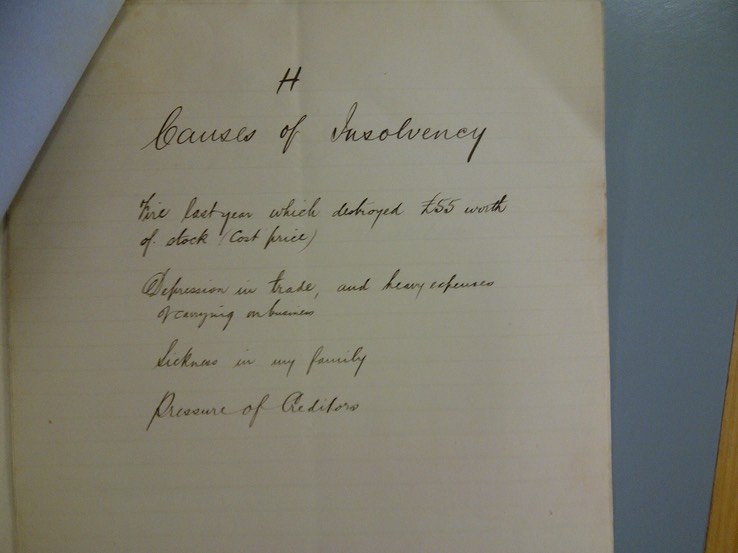 H
Causes of Insolvency
Fire last year which destroyed £55 worth
of stock (Cost price)
Depression in trade, and heavy expenses
of carrying on business
Sickness in my family
Pressure of Creditors